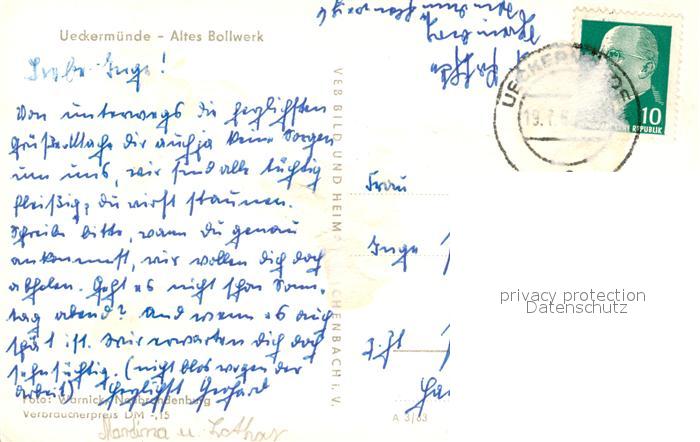 Ueckermünde - Altes Bollwerk
Liebe Inge!
Von unterwegs die herzlichsten
Grüße. Mache dir auch ja keine Sorgen
um uns, wir sind alle tüchtig
fleißig, du wirst staunen.
Schreibe bitte, wann du genau
ankommst, wir wollen dich doch
abholen. Geht es nicht schon Sonn-
tag abend? Und wenn es auch
spät ist. Wir erwarten dich doch
sehnsüchtig. (nicht blos wegen der
Arbeit) Herzlichst Gerhard
Foto: Warnick, Neubrandenburg
Verbraucherpreis DM -,15
Martina u. Lothar
VEB BILD UND HEIMAT REICHENBACH i. V.
A 3/63
UECKERMÜNDE
19.7.6
10
REPUBLIK
Frau
Inge
privacy protection
Datenschutz